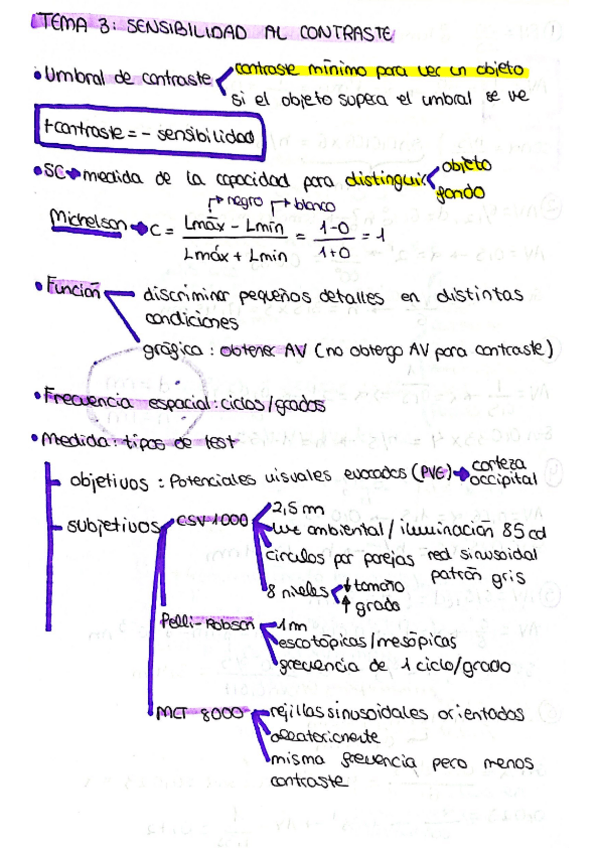 TEMA 3: SENSIBILIDAD AL CONTRASTE
• Umbral de contraste
contraste mínimo para ver un objeto
si el objeto supera el umbral se ve
+ contraste = - sensibilidad
• SC → medida de la capacidad para distinguir
objeto
fondo
negro blanco
Michelson → C = Lmáx - Lmín / Lmáx + Lmín = 1-0 / 1+0 = 1
• Función
discriminar pequeños detalles en distintas
condiciones
gráfica: obtener AV (no obtengo AV para contraste)
• Frecuencia espacial: ciclos/grados
• Medida: tipos de test
objetivos: Potenciales visuales evocados (PVE) → corteza
occipital
subjetivos
CSV-1000
2,5 m
luz ambiental / iluminación 85 cd
círculos por parejas red sinusoidal
patrón gris
8 niveles
↓ tamaño
↑ grado
Pelli-Robson
1 m
escotópicas/mesópicas
frecuencia de 1 ciclo/grado
MCT-8000
rejillas sinusoidales orientadas
misma frecuencia pero menos
contraste